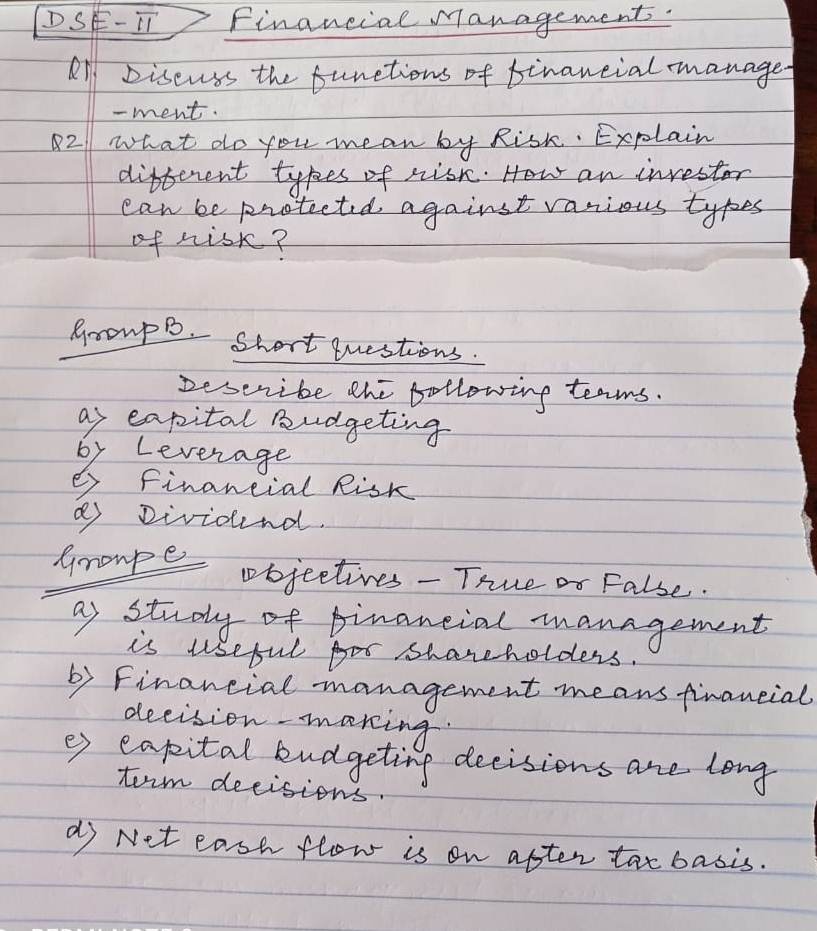 DSE-II Financial Management.
Q1. Discuss the functions of financial manage-
-ment.
Q2. What do you mean by Risk. Explain
different types of risk. How an investor
can be protected against various types
of risk?
Group B. Short questions.
Describe the following terms.
a) Capital Budgeting
b) Leverage
c) Financial Risk
d) Dividend.
Group C Objectives - True or False.
a) Study of financial management
is useful for shareholders.
b) Financial management means financial
decision-making.
c) Capital budgeting decisions are long
term decisions.
d) Net cash flow is on after tax basis.